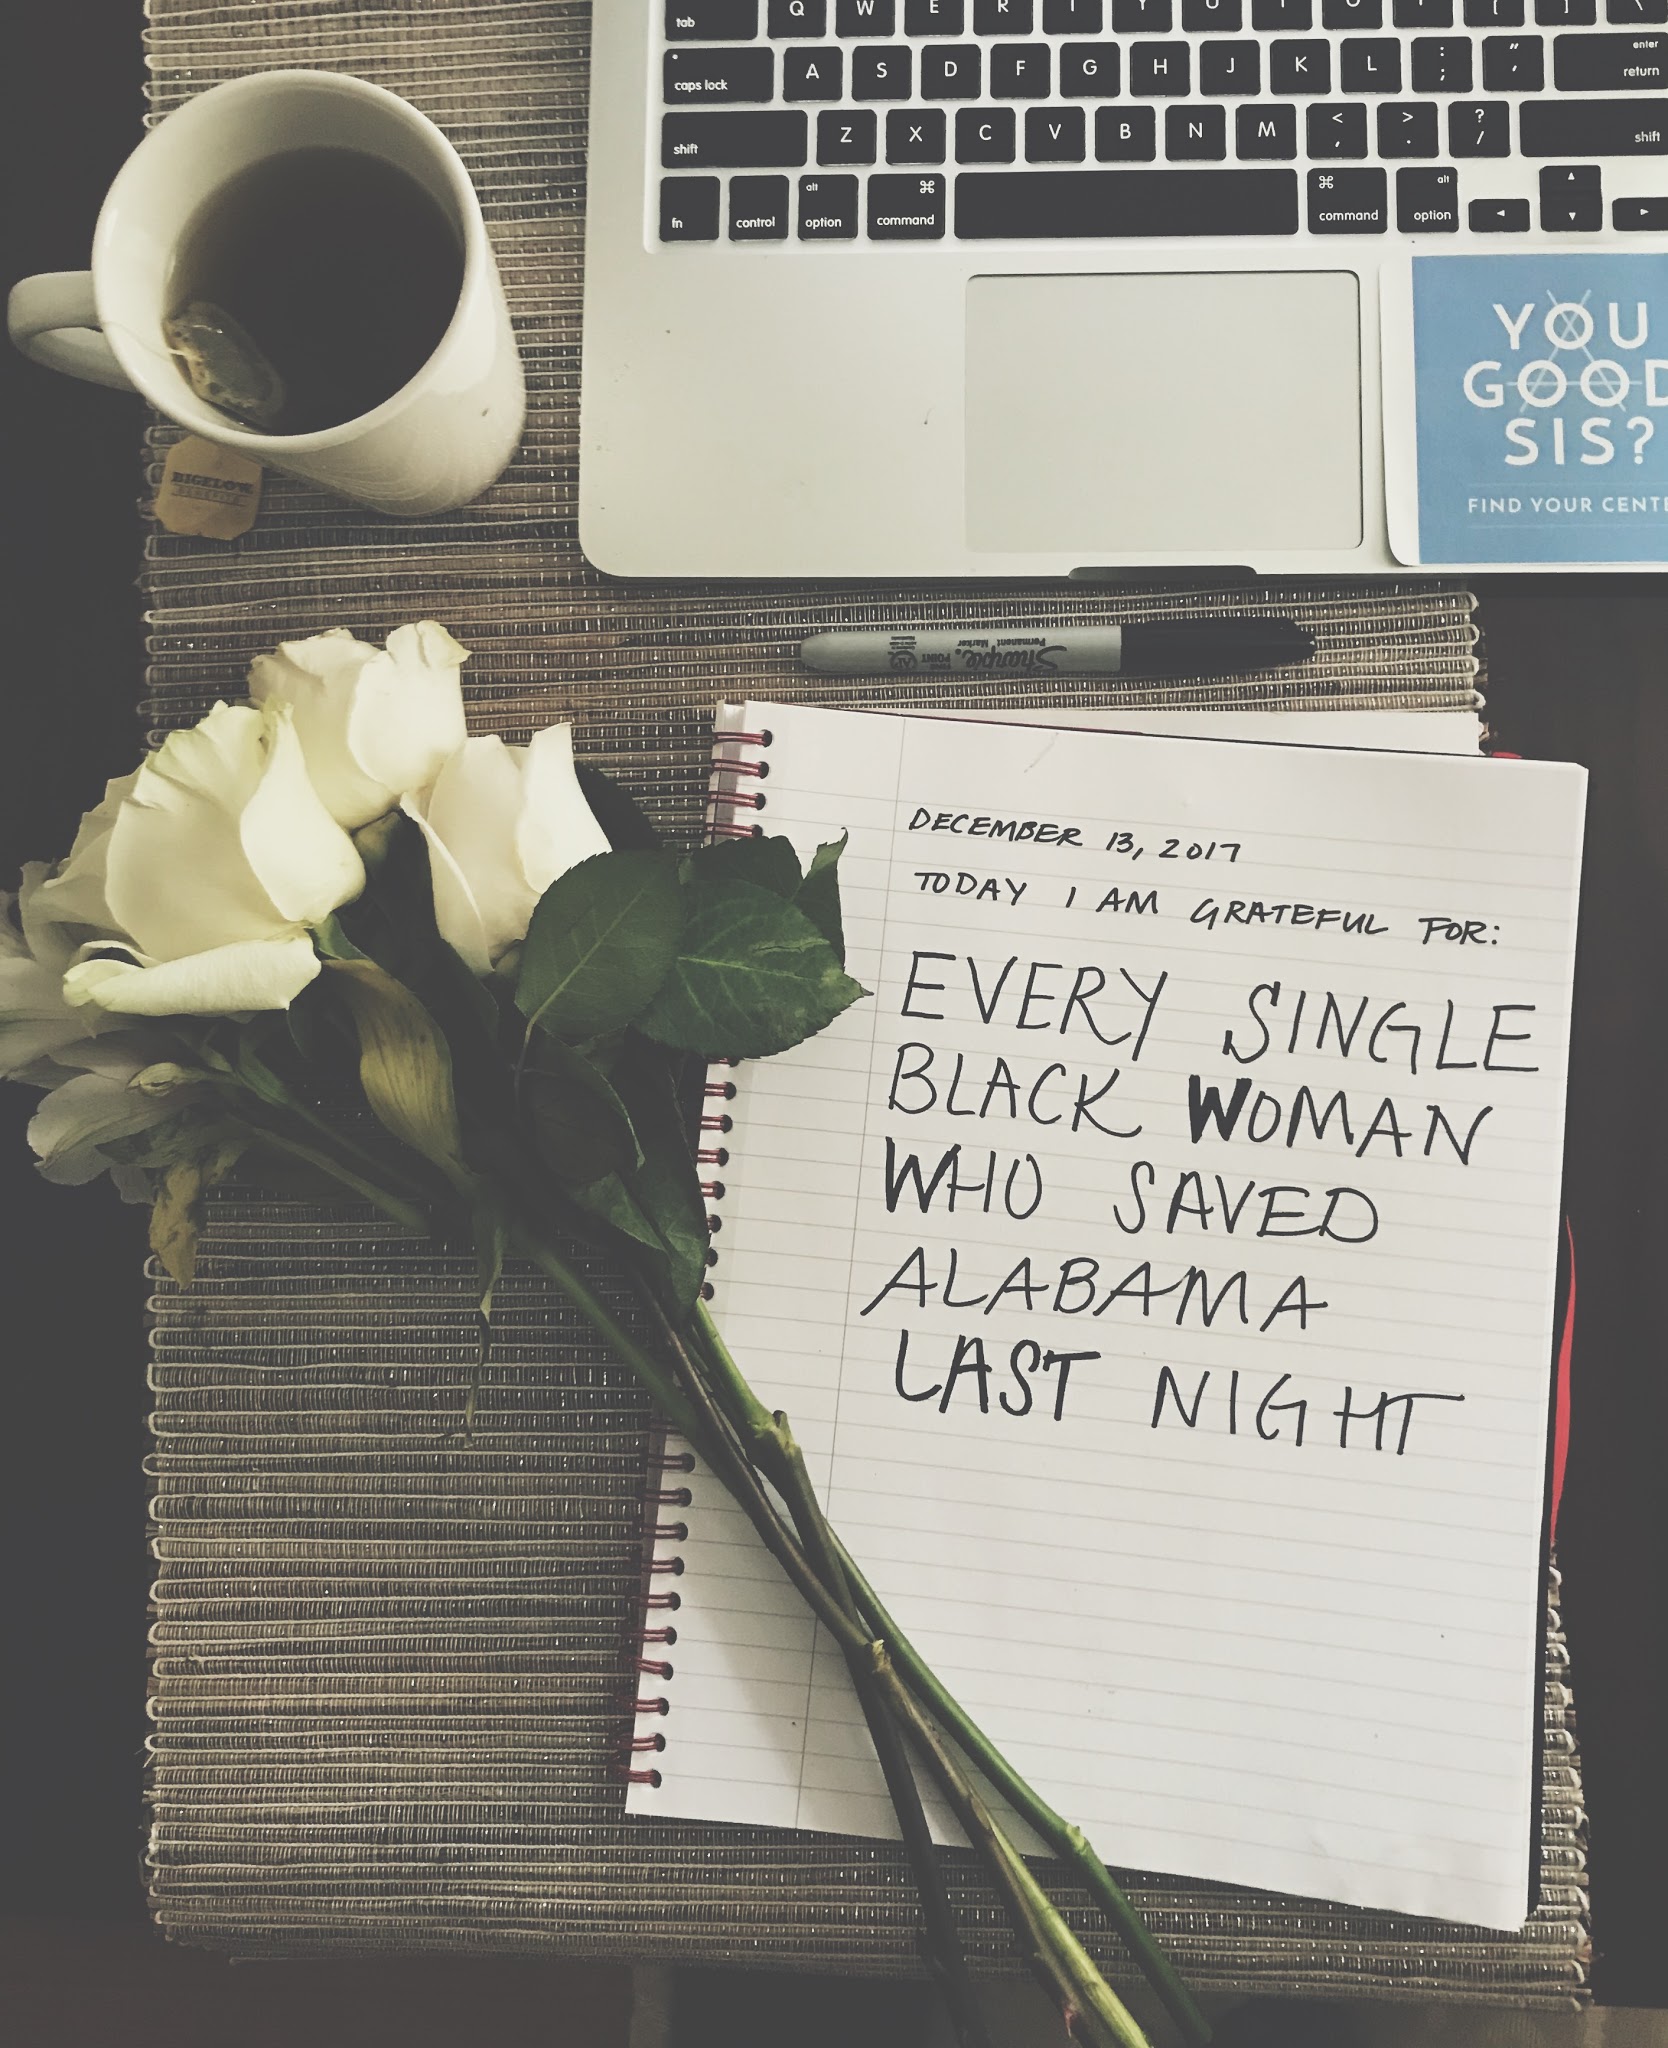 tab Q W E R T Y U I O P [ ] \
caps lock A S D F G H J K L : ; " ' enter return
shift Z X C V B N M < , > . ? / shift
fn control alt option ⌘ command ⌘ command alt option ◄ ▲ ▼ ►
YOU
GOOD
SIS?
FIND YOUR CENTE
BIGELOW
BENEFITS
Sharpie
FINE POINT
Permanent Marker
DECEMBER 13, 2017
TODAY I AM GRATEFUL FOR:
EVERY SINGLE
BLACK WOMAN
WHO SAVED
ALABAMA
LAST NIGHT